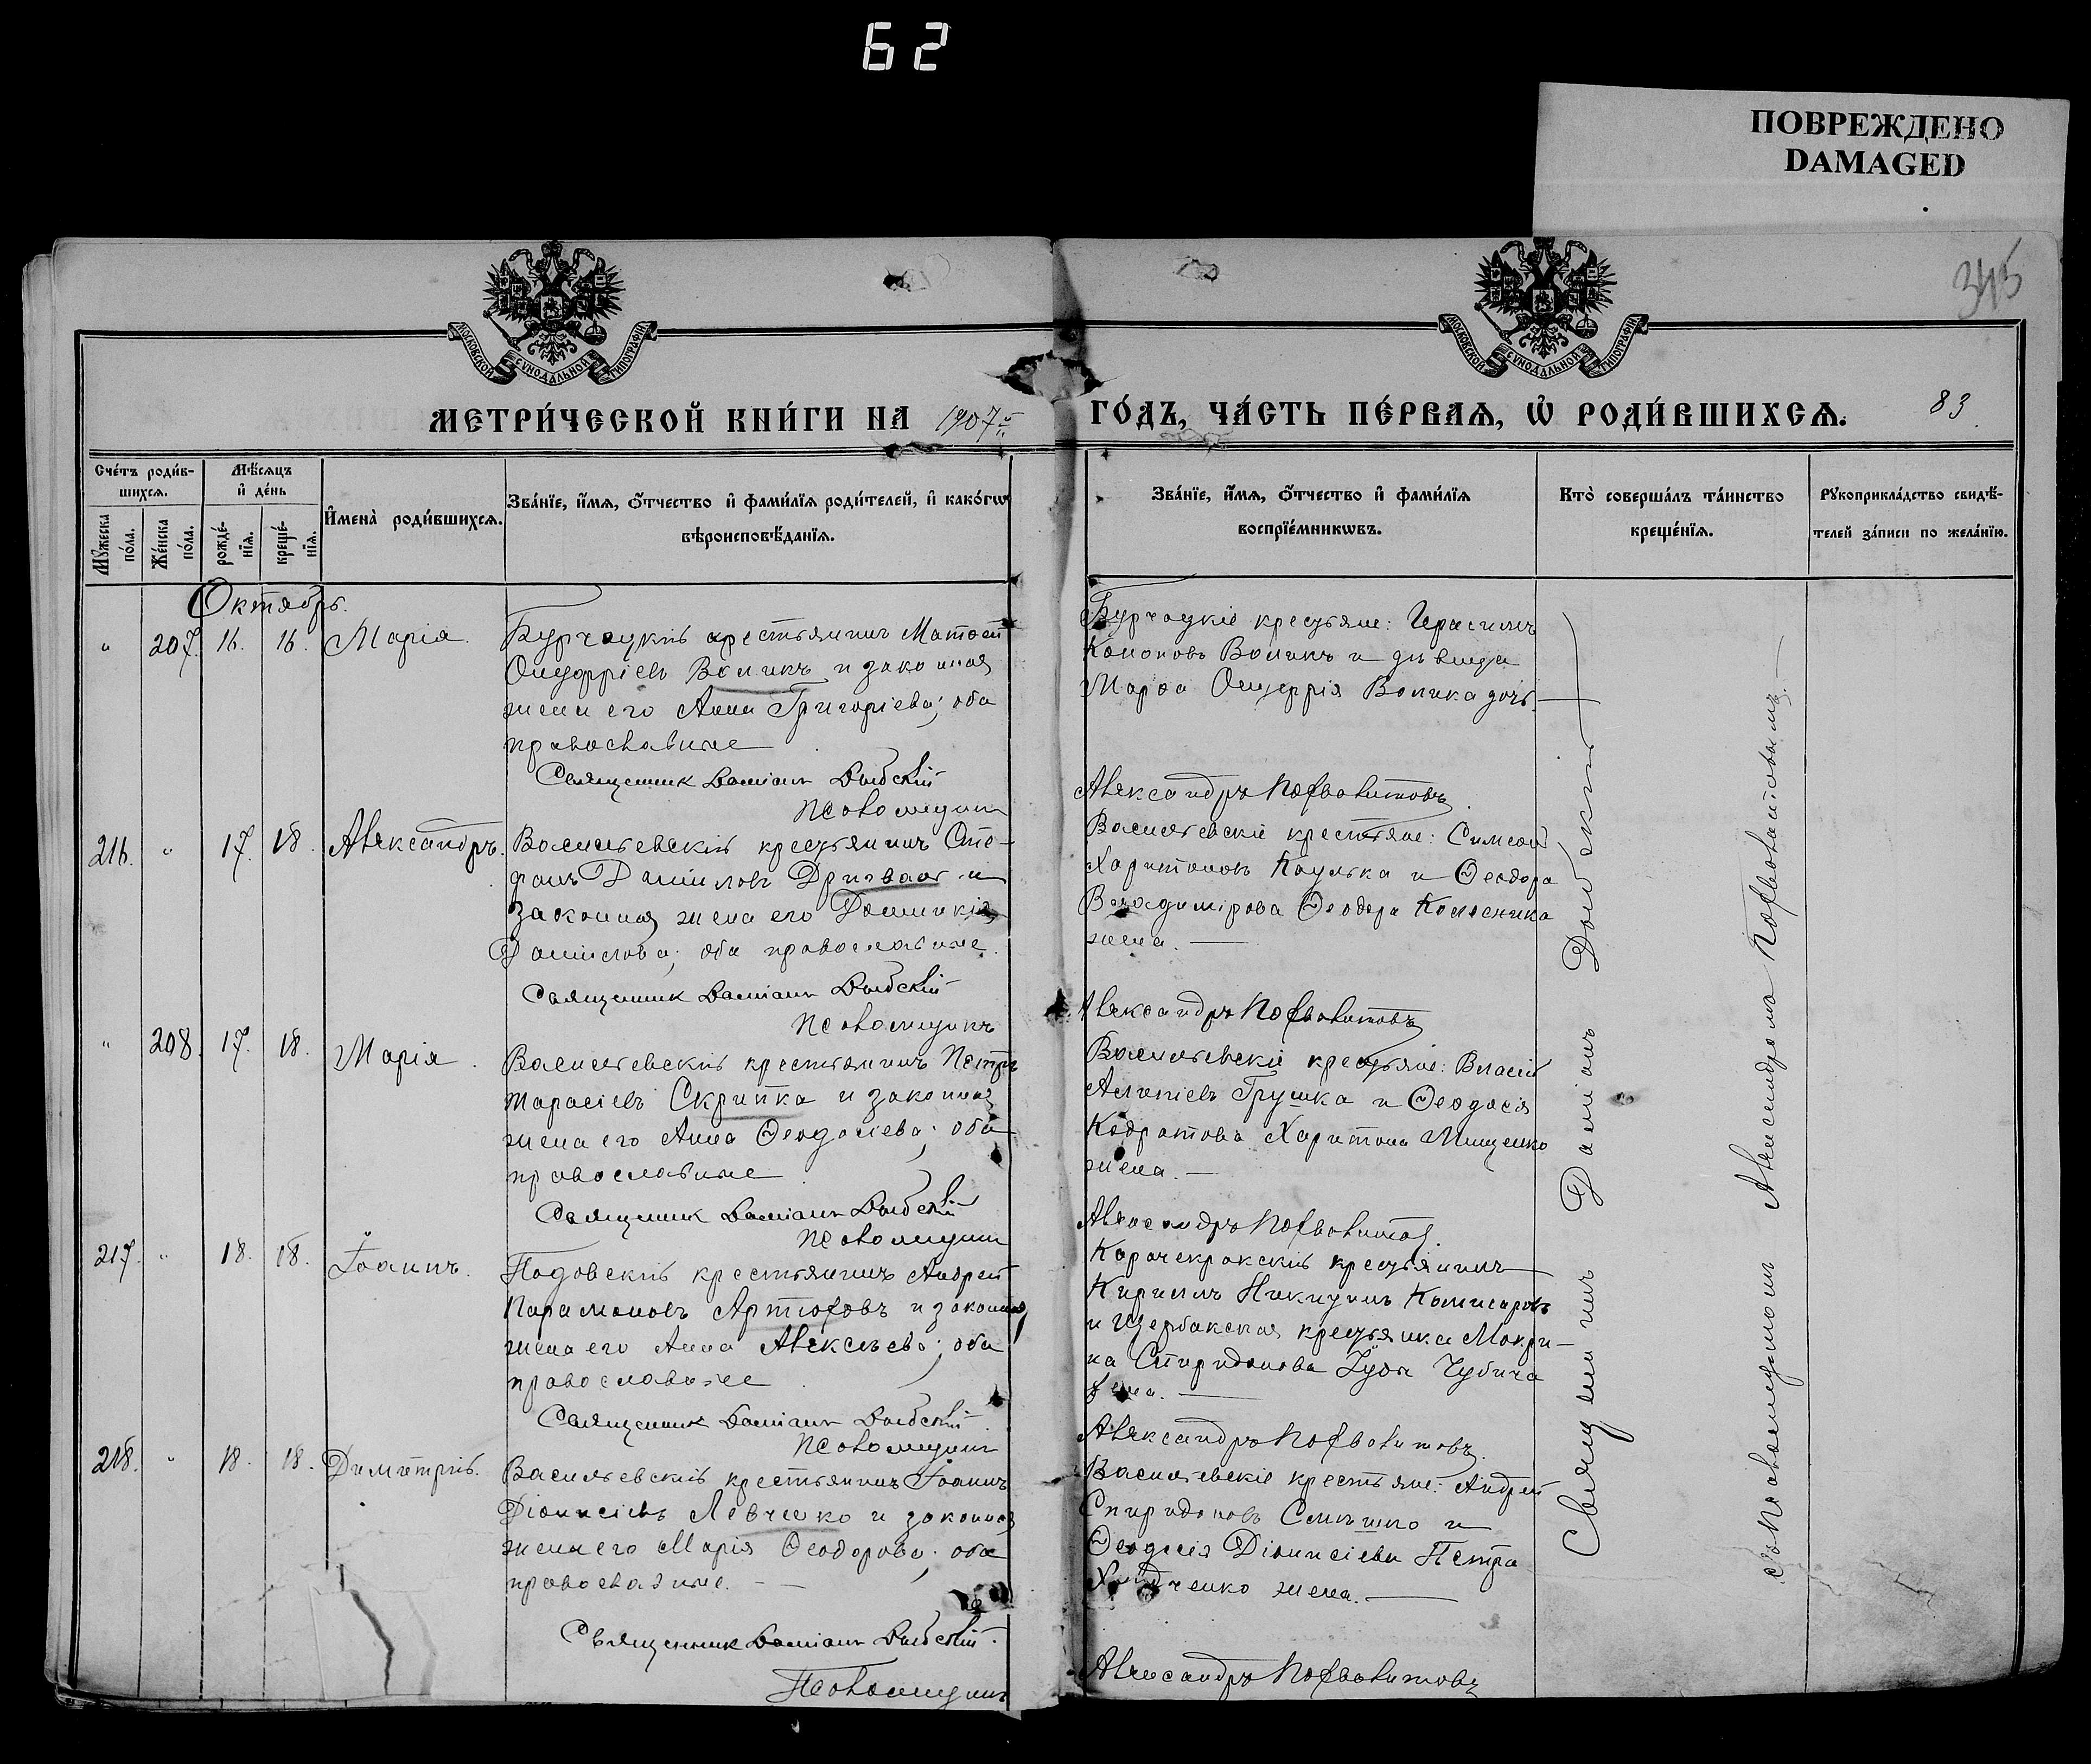 62
ПОВРЕЖДЕНО
DAMAGED
345
МОСКОВСКОЙ СѴНОДАЛЬНОЙ ТИПОГРАФІИ
МОСКОВСКОЙ СѴНОДАЛЬНОЙ ТИПОГРАФІИ
МЕТРИ́ЧЕСКОЙ КНИ́ГИ НА 1907й
ГО́ДЪ, ЧА́СТЬ ПЕ́РВАЯ, Ѿ РОДИ́ВШИХСѦ. 83
Сче́тъ роди́в-
шихсѧ.
Мѣ́сѧцъ
и҆ де́нь
Мꙋ́жеска
по́ла.
Же́нска
по́ла.
рожде́-
нїѧ.
креще́-
нїѧ.
И҆мена̀ роди́вшихсѧ.
Зва́нїе, и҆́мѧ, ѻ҆́тчество и҆ фами́лїѧ роди́телей, и҆ како́гѡ
вѣроисповѣ́данїѧ.
Зва́нїе, и҆́мѧ, ѻ҆́тчество и҆ фами́лїѧ
воспрїе́мникѡвъ.
Кто̀ соверша́лъ та́инство
креще́нїѧ.
Рꙋкоприкла́дство свидѣ́-
телей за́писи по жела́нїю.
Октябрь.
" 207. 16. 16. Марія.
Бурчацкій крестьянинъ Матѳей
Онуфріевъ Воликъ и законная
жена его Анна Григоріева; оба
православные
Священникъ Даміанъ Домбскій
Псаломщикъ
Бурчацкіе крестьяне: Герасимъ
Кононовъ Воликъ и дѣвица
Марѳа Онуфрія Волика дочь.
Александръ Похвалитовъ
216. " 17. 18. Александръ.
Васильевскій крестьянинъ Сте-
фанъ Даниловъ и
законная жена его Домникія
Данилова; оба православные.
Священникъ Даміанъ Домбскій
Псаломщикъ
Васильевскіе крестьяне: Симеонъ
Харитоновъ и Ѳеодора
Владимірова Ѳеодора Колесника
жена.
Александръ Похвалитовъ
" 208. 17. 18. Марія.
Васильевскій крестьянинъ Петръ
Тарасіевъ Скрипка и законная
жена его Анна Ѳеодосіева; оба
православные
Священникъ Даміанъ Домбскій
Псаломщикъ
Васильевскіе крестьяне: Власій
Грушка и Ѳеодосія
Кодратова Харитона Мищенко
жена.
Александръ Похвалитовъ.
217. " 18. 18. Іоаннъ.
крестьянинъ Андрей
Парамоновъ Артюховъ и законная
жена его Анна Алексѣева; оба
православные
Священникъ Даміанъ Домбскій
Псаломщикъ
Карачекракскій крестьянинъ
Кириллъ Никитинъ Комисаровъ
и Щербакская крестьянка Макри-
на Спиридонова Чубича
жена.
Александръ Похвалитовъ.
218. " 18. 18. Димитрій.
Васильевскій крестьянинъ Іоаннъ
Діонисіевъ Левченко и законная
жена его Марія Ѳеодорова; оба
православные.
Священникъ Даміанъ Домбскій.
Псаломщикъ
Васильевскіе крестьяне: Андрей
Спиридоновъ и
Ѳеодосія Діонисіева Петра
жена.
Александръ Похвалитовъ
Священникъ Даміанъ Домбскій
съ Псаломщикомъ Александромъ Похвалитовымъ.